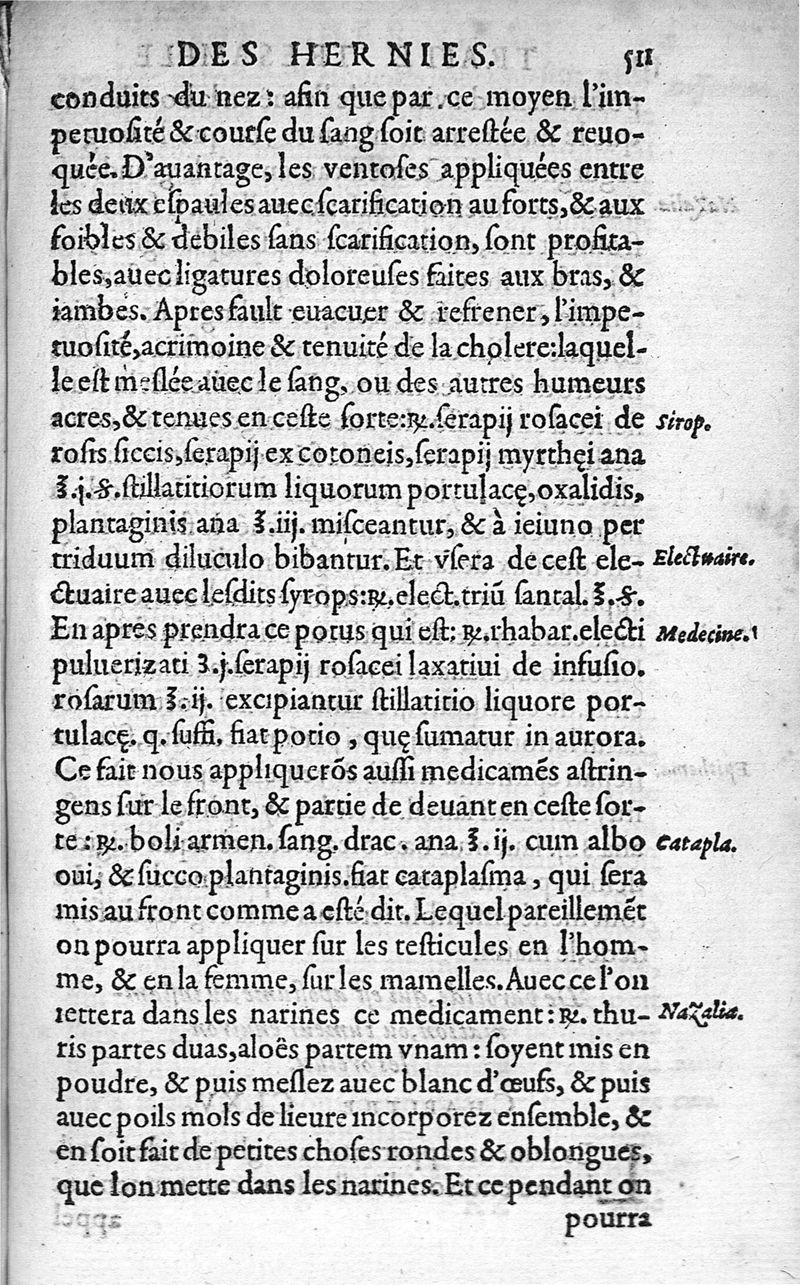 DES HERNIES. 511
conduits du nez: afin que par ce moyen l'im-
petuosité & course du sang soit arrestée & reuo-
quée. D'auantage, les ventoses appliquées entre
les deux espaules auec scarification au forts, & aux
foibles & debiles sans scarification, sont profita-
bles, auec ligatures doloreuses faites aux bras, &
iambes. Apres fault euacuer & refrener, l'impe-
tuosité, acrimoine & tenuité de la cholere: laquel-
le est meslée auec le sang, ou des autres humeurs
acres, & tenues en ceste sorte: ℞. serapij rosacei de
Sirop.
rosis siccis, serapij ex cotoneis, serapij myrthęi ana
℥.j.ß. stillatitiorum liquorum portulacę, oxalidis,
plantaginis ana ℥.iij. misceantur, & à ieiuno per
triduum diluculo bibantur. Et vsera de cest ele-
Electuaire.
ctuaire auec lesdits syrops: ℞. elect. triũ santal. ℥.ß.
En apres prendra ce potus qui est: ℞. rhabar. electi
Medecine.
puluerizati ʒ.j. serapij rosacei laxatiui de infusio.
rosarum ℥.ij. excipiantur stillatitio liquore por-
tulacę. q. suffi. fiat potio, quę sumatur in aurora.
Ce fait nous appliquerõs aussi medicamẽs astrin-
gens sur le front, & partie de deuant en ceste sor-
te: ℞. boli armen. sang. drac. ana ℥.ij. cum albo
Catapla.
oui, & succo plantaginis. fiat cataplasma, qui sera
mis au front comme a esté dit. Lequel pareillemẽt
on pourra appliquer sur les testicules en l'hom-
me, & en la femme, sur les mamelles. Auec ce l'on
iettera dans les narines ce medicament: ℞. thu-
Nazalia.
ris partes duas, aloës partem vnam: soyent mis en
poudre, & puis meslez auec blanc d'œufs, & puis
auec poils mols de lieure incorporez ensemble, &
en soit fait de petites choses rondes & oblongues,
que lon mette dans les narines. Et ce pendant on
pourra